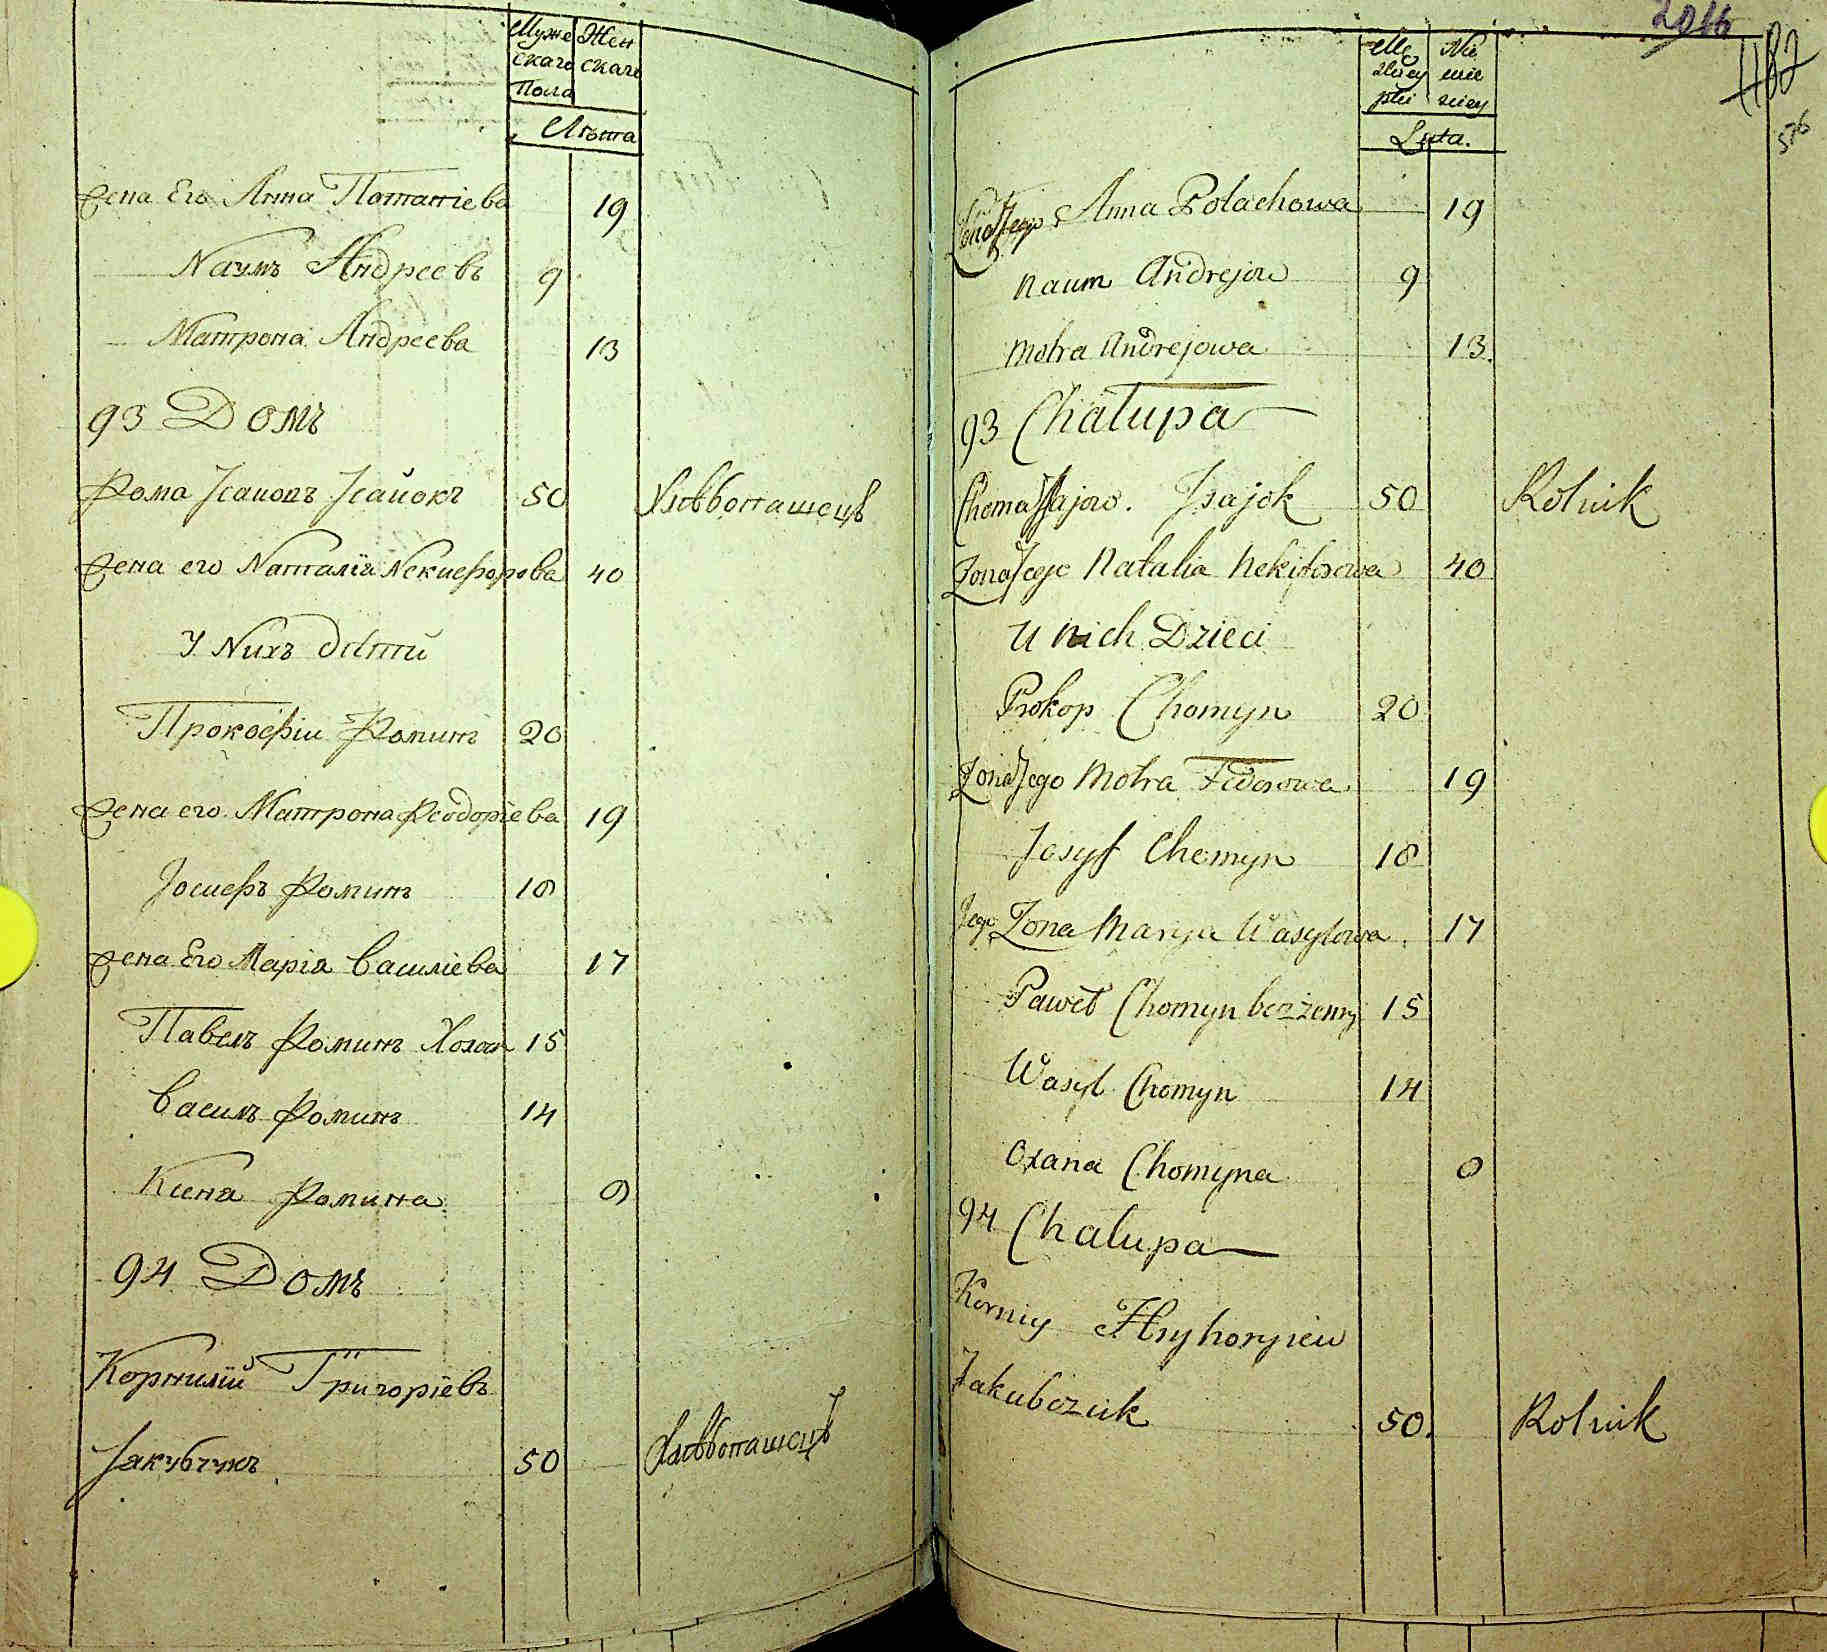 Муже Жен
скаго скаго
Пола
Лѣта
Жена Его Анна Потапіева 19
Наумъ Андреевъ 9
Матрона Андреева 13
93 Домъ
Фома Ісаиовъ Ісаиокъ 50 Хлѣбопашецъ
Жена его Наталія Некиефорова 40
У Нихъ дѣти
Прокофіи Фоминъ 20
Жена его Матрона Феодоріева 19
Іосиефъ Фоминъ 18
Жена Его Марія Василіева 17
Павелъ Фоминъ Холост 15
Василь Фоминъ 14
Ксена Фомина 8
94 Домъ
Корнилій Григоріевъ
Якубчукъ 50 Хлѣбопашецъ
2016
482
576
Mę Nie
zkiey wie
płci sciey
Lata.
Żona Jego Anna Potachowa 19
Naum Andrejow 9
Motra Andrejowa 13.
93 Chałupa
Choma Isajow. Isajok 50 Rolnik
Żona Jego Natalia Nekiforowa 40
U Nich Dzieci
Prokop Chomyn 20
Żona Jego Motra Fedorowa 19
Josyf Chomyn 18
Jego Żona Marya Wasylowa. 17
Paweł Chomyn bezżenny 15
Wasyl Chomyn 14
Oxana Chomyna 8
94 Chałupa
Korniy Hryhoryiew
Jakubczuk 50. Rolnik